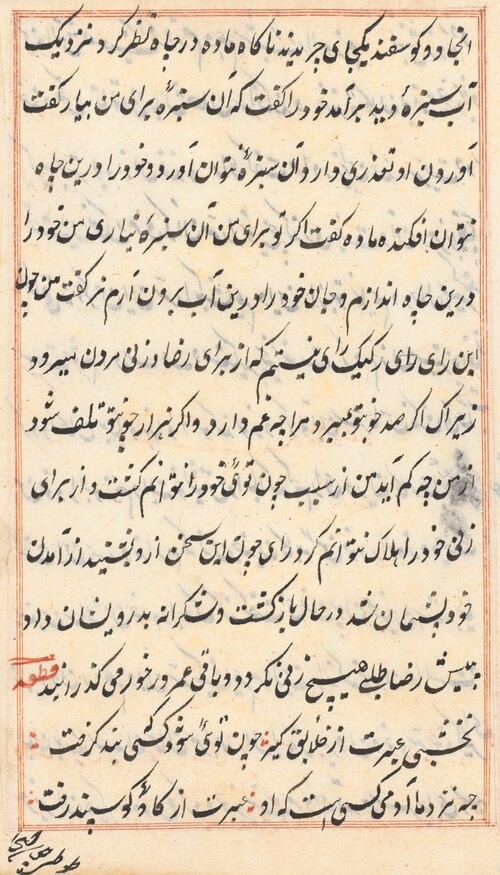 انجا دو کوسفند یکجای چریدند ناکاه ماده در چاه نظر کرد نزدیک
آب سبزهٔ دید برآمد خود را کفت که آن سبزه برای من بیار کفت
آوردن او تعذری دارد آن سبزه نتوان آورد و خود را درین چاه
نتوان افکند ماده کفت اکر تو برای من آن سبزه نیاری من خود را
درین چاه اندازم و جان خود را درین آب برون آرم نر کفت من چون
این رای رای رکیک رای نیستم که از برای رضا و زنی مردن میرود
زیراک اکر صد چو تو بمیرد مرا چه غم دارد و اکر هزار چو تو تلف شود
از من چه کم آید من از سبب چون توئی خود را نتوانم کشت و از برای
زنی خود را هلاک نتوانم کرد رای چون این سخن ازو بشنید از آمدن
خود پشیمان شد در حال بازکشت و شکرانه بدرویشان داد
بیش رضا طلبی هیچ زنی نکرد و باقی عمر در خورمی کذرانید قطعه
نخشبی عبرت از خلایق کیر چون توی شوذ کسی بند کرفت
چه نزد ما آدمی کسی است که او عبرت از کاو و کوسپند رفت